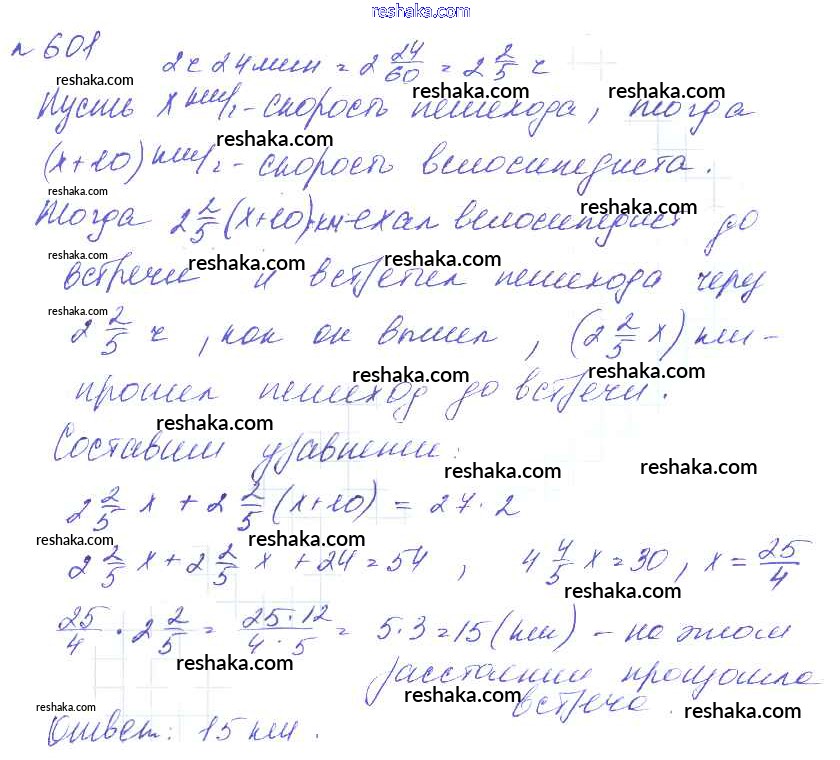 reshaka.com
№ 601
2 ч 24 мин = 2 24/60 = 2 2/5 ч
reshaka.com reshaka.com reshaka.com
Пусть x км/ч - скорость пешехода, тогда
reshaka.com
(x+10) км/ч - скорость велосипедиста.
reshaka.com
reshaka.com
Тогда 2 2/5 (x+10) км ехал велосипедист до
reshaka.com reshaka.com reshaka.com
встречи и встретил пешехода через
reshaka.com
2 2/5 ч, как он вышел, (2 2/5 x) км -
reshaka.com reshaka.com
прошел пешеход до встречи.
reshaka.com
Составим уравнение:
reshaka.com reshaka.com
2 2/5 x + 2 2/5 (x+10) = 27 · 2
reshaka.com reshaka.com
2 2/5 x + 2 2/5 x + 24 = 54, 4 4/5 x = 30, x = 25/4
reshaka.com
25/4 · 2 2/5 = 25·12/4·5 = 5·3 = 15 (км) - на этом
reshaka.com
расстоянии произошла
reshaka.com
встреча.
reshaka.com reshaka.com
Ответ: 15 км.